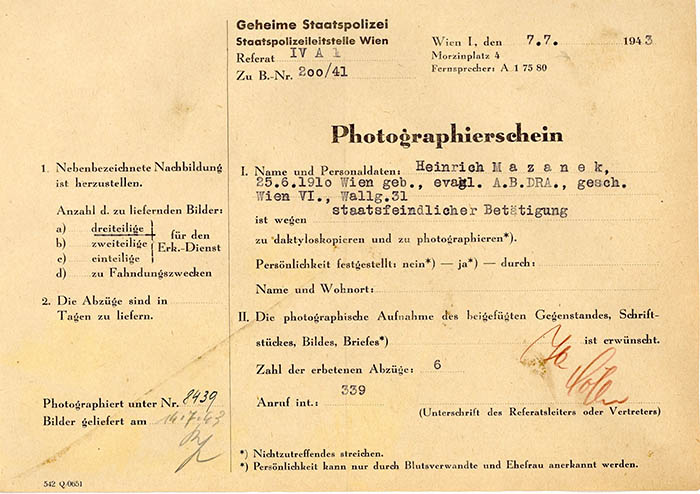 Geheime Staatspolizei
Staatspolizeileitstelle Wien
Referat IV A 1
Zu B.-Nr. 200/41
Wien I, den 7.7. 1943
Morzinplatz 4
Fernsprecher: A 1 75 80
Photographierschein
1. Nebenbezeichnete Nachbildung
ist herzustellen.
Anzahl d. zu liefernden Bilder:
a) dreiteilige
b) zweiteilige
c) einteilige
für den
Erk.-Dienst
d) zu Fahndungszwecken
2. Die Abzüge sind in
Tagen zu liefern.
Photographiert unter Nr. 8439
Bilder geliefert am 14.7.43
I. Name und Personaldaten: Heinrich Mazanek,
25.6.1910 Wien geb., evagl. A.B.DRA., gesch.
Wien VI., Wallg.31
ist wegen staatsfeindlicher Betätigung
zu daktyloskopieren und zu photographieren*).
Persönlichkeit festgestellt: nein*) — ja*) — durch:
Name und Wohnort:
II. Die photographische Aufnahme des beigefügten Gegenstandes, Schrift-
stückes, Bildes, Briefes*) ist erwünscht.
Zahl der erbetenen Abzüge: 6
Anruf int.: 339
(Unterschrift des Referatsleiters oder Vertreters)
*) Nichtzutreffendes streichen.
*) Persönlichkeit kann nur durch Blutsverwandte und Ehefrau anerkannt werden.
542 Q/0651